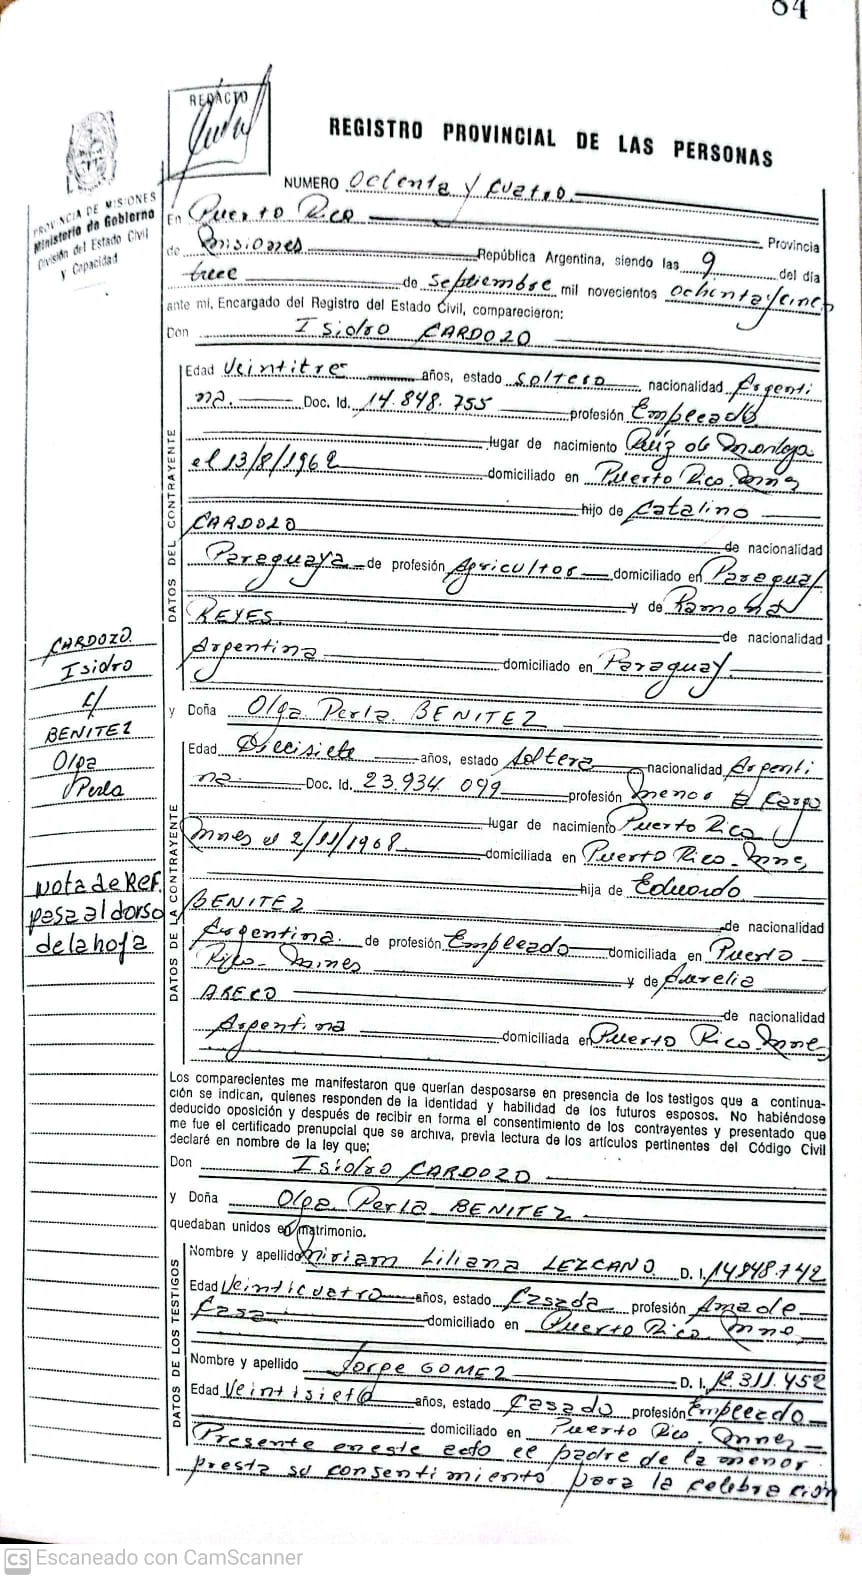 84
REDACTO
REGISTRO PROVINCIAL DE LAS PERSONAS
PROVINCIA DE MISIONES
Ministerio de Gobierno
División del Estado Civil
y Capacidad
NUMERO Ochenta y cuatro.
En Puerto Rico Provincia
de Misiones República Argentina, siendo las 9 del día
trece de Septiembre mil novecientos ochenta y cinco
ante mí, Encargado del Registro del Estado Civil, comparecieron:
Don Isidro CARDOZO
DATOS DEL CONTRAYENTE
Edad Veintitre años, estado soltero nacionalidad Argenti
na. Doc. Id. 14.848.755 profesión Empleado
lugar de nacimiento Ruiz de Montoya
el 13/8/1962 domiciliado en Puerto Rico. Mnes
hijo de Catalino
CARDOZO de nacionalidad
Paraguaya de profesión Agricultor domiciliado en Paraguay
y de Ramona
REYES de nacionalidad
Argentina domiciliado en Paraguay.
CARDOZO
Isidro
c/
BENITEZ
Olga
Perla
y Doña Olga Perla BENITEZ
DATOS DE LA CONTRAYENTE
Edad Diecisiete años, estado soltera nacionalidad Argenti
na. Doc. Id. 23.934.099 profesión menor a cargo
lugar de nacimiento Puerto Rico
Mnes el 2/11/1968 domiciliada en Puerto Rico. Mnes
hija de Eduardo
BENITEZ de nacionalidad
Argentina. de profesión Empleado domiciliada en Puerto
Rico. Mines y de Aurelia
ARECO de nacionalidad
Argentina domiciliada en Puerto Rico. Mnes
nota de Ref.
pasa al dorso
de la hoja
Los comparecientes me manifestaron que querían desposarse en presencia de los testigos que a continua-
ción se indican, quienes responden de la identidad y habilidad de los futuros esposos. No habiéndose
deducido oposición y después de recibir en forma el consentimiento de los contrayentes y presentado que
me fue el certificado prenupcial que se archiva, previa lectura de los artículos pertinentes del Código Civil
declaré en nombre de la ley que;
Don Isidro CARDOZO
y Doña Olga Perla BENITEZ
quedaban unidos en matrimonio.
DATOS DE LOS TESTIGOS
Nombre y apellido Miriam Liliana LEZCANO D. I. 14.848.742
Edad Veinticuatro años, estado Casada profesión Ama de
Casa domiciliado en Puerto Rico. Mnes
Nombre y apellido Jorge GOMEZ D. I. 12.311.452
Edad Veintisiete años, estado Casado profesión Empleado
domiciliado en Puerto Rico. Mnes
Presente en este acto el padre de la menor
presta su consentimiento para la celebración
CS Escaneado con CamScanner